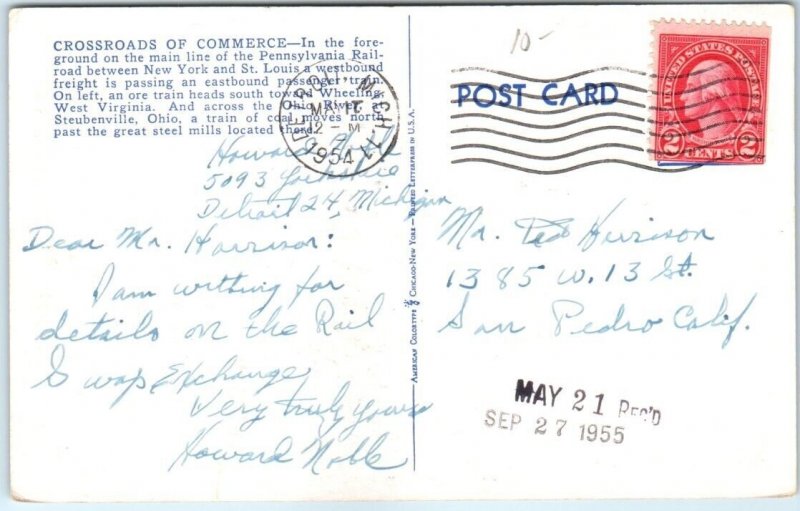 CROSSROADS OF COMMERCE—In the fore-
ground on the main line of the Pennsylvania Rail-
road between New York and St. Louis a westbound
freight is passing an eastbound passenger train.
On left, an ore train heads south toward Wheeling,
West Virginia. And across the Ohio River at
Steubenville, Ohio, a train of coal moves north
past the great steel mills located there.
Howard
5093 Yorkshire
Detroit 24, Michigan
Dear Mr. Harrison:
I am writing for
details on the Rail
Swap Exchange
Very truly yours
Howard Noble
DETROIT, MICH.
MAY
12 - M
1954
AMERICAN COLORTYPE CHICAGO-NEW YORK — PRINTED LETTERPRESS IN U.S.A.
10-
POST CARD
UNITED STATES POSTAGE
2 CENTS 2
Mr. Ted Herrison
1385 W. 13 St.
San Pedro Calif.
MAY 21 REC'D
SEP 27 1955